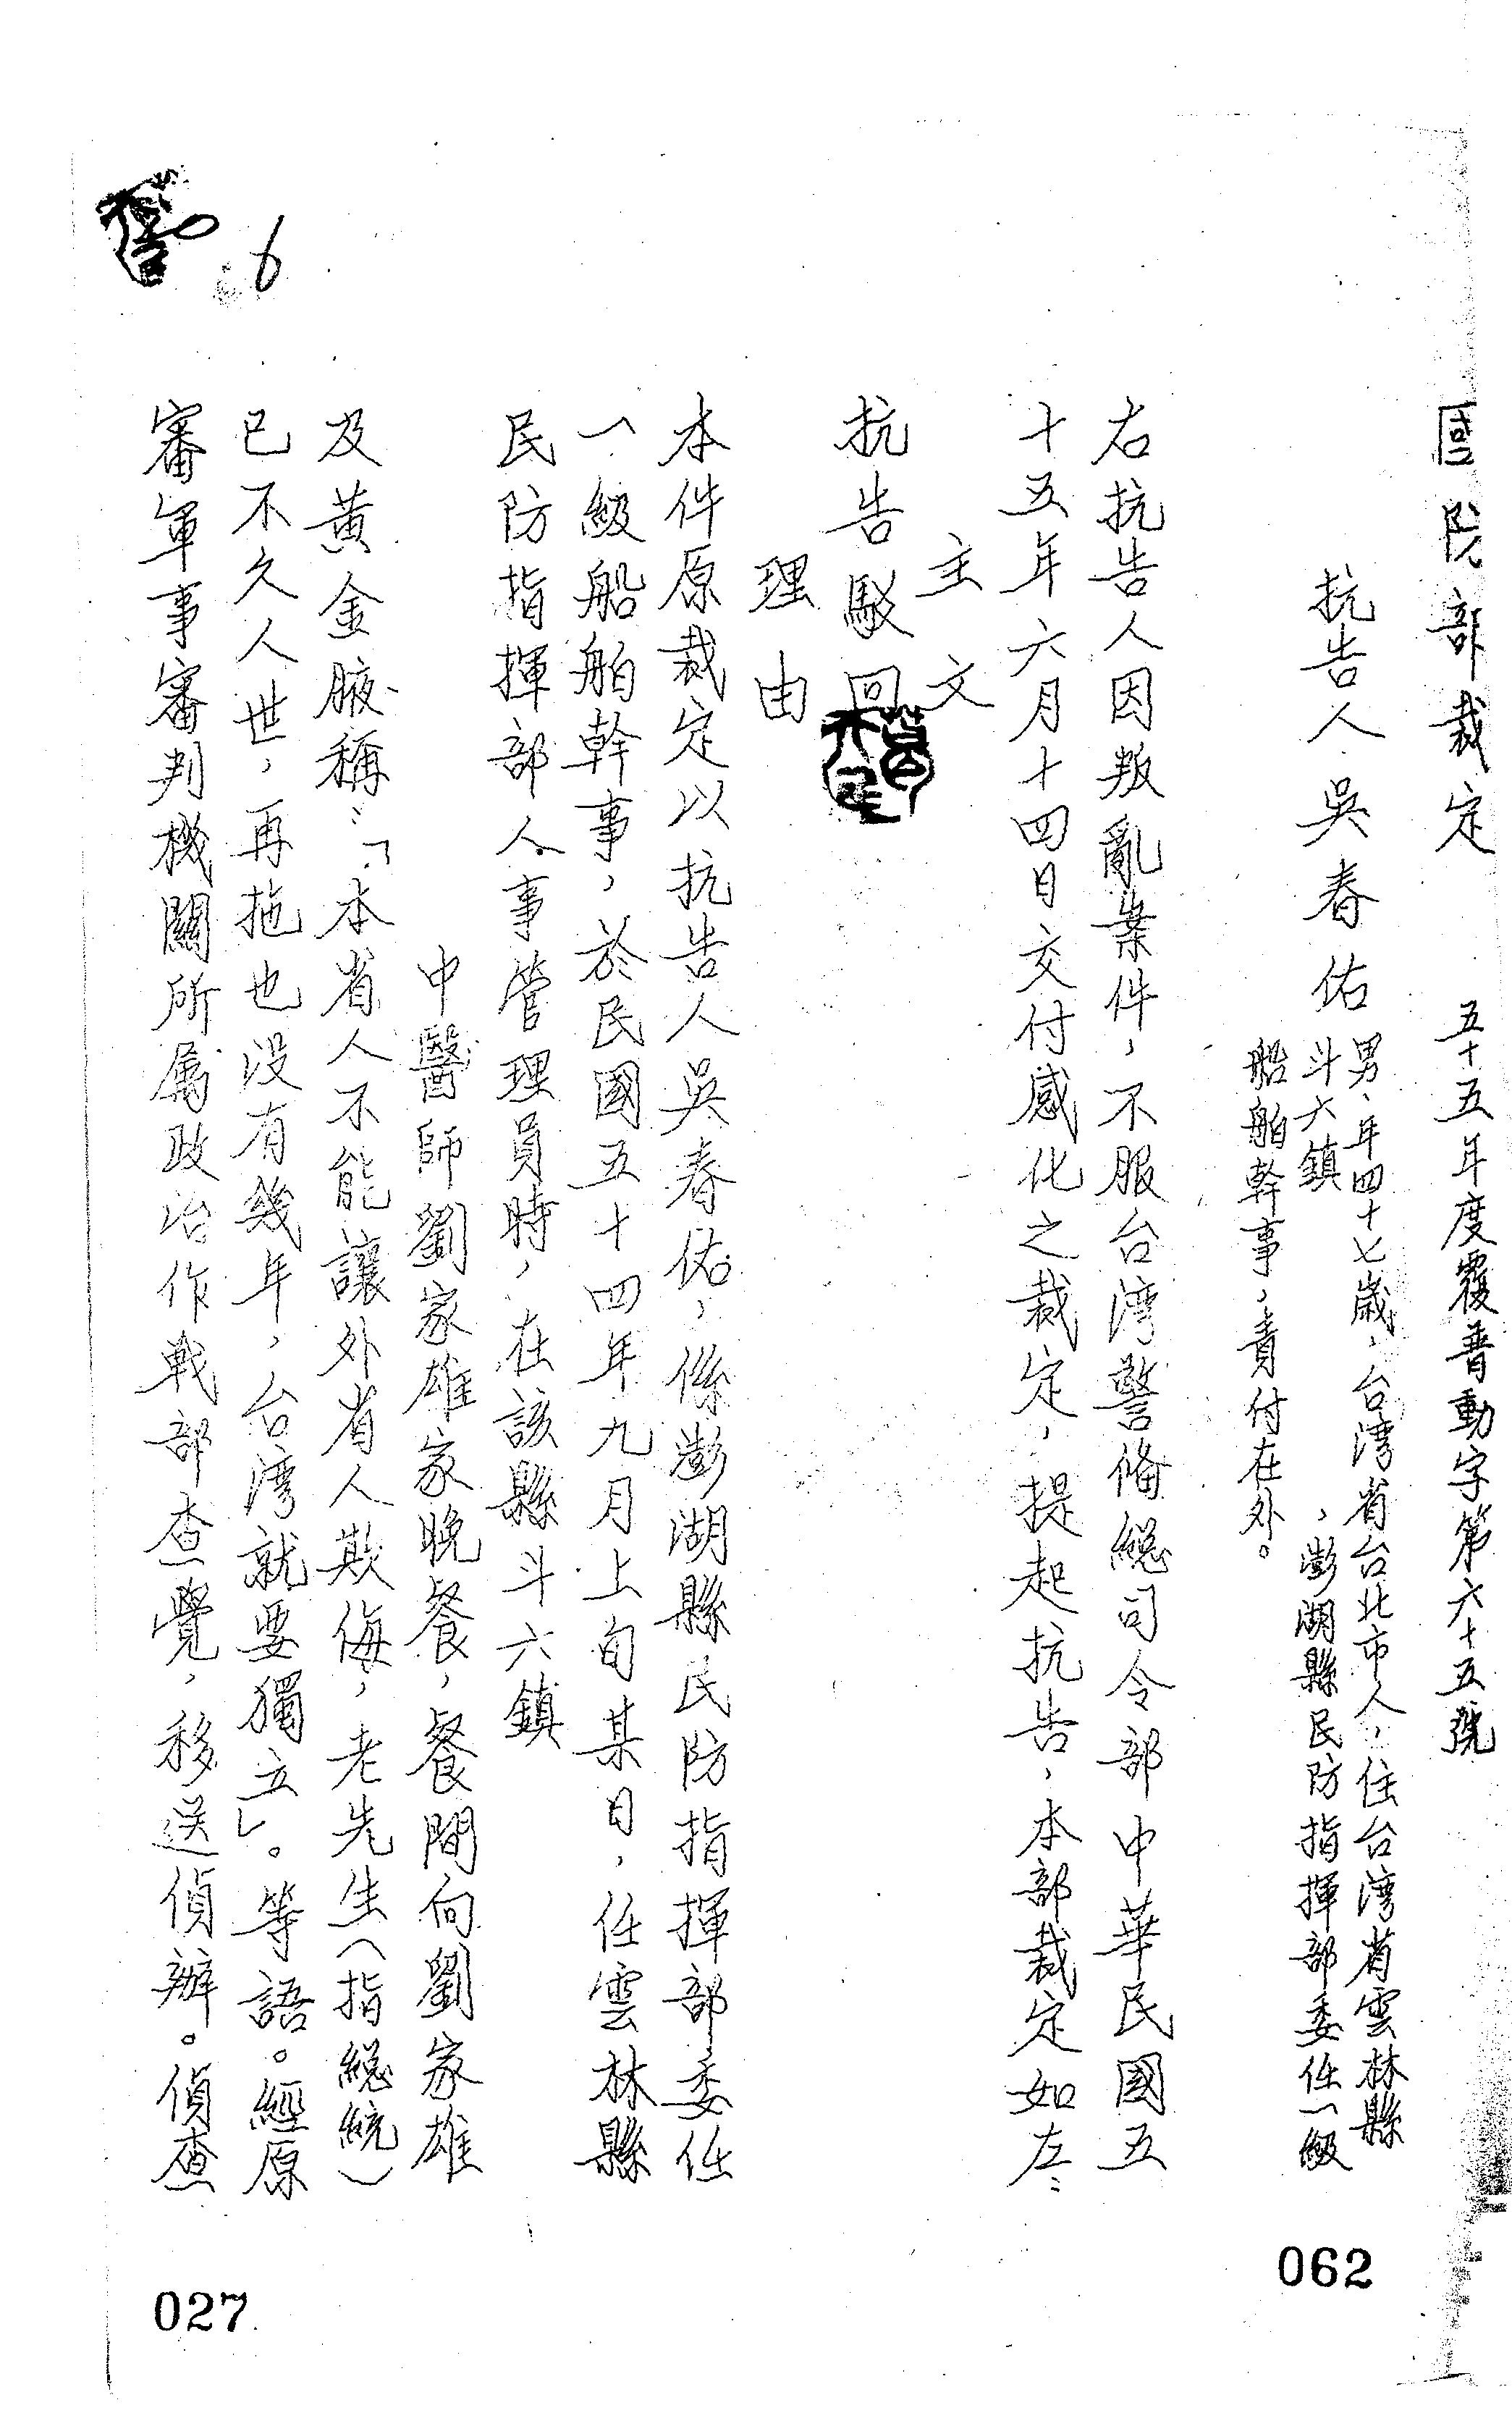 國防部裁定　五十五年度覆普動字第六十五號
抗告人　吳春佑
男、年四十七歲，台湾省台北市人，住台湾省雲林縣
斗六鎮　，澎湖縣民防指揮部委任一級
船舶幹事，責付在外。
右抗告人因叛亂案件，不服台湾警備總司令部中華民國五
十五年六月十四日交付感化之裁定，提起抗告，本部裁定如左：
主文
抗告駁回
理由
本件原裁定以抗告人吳春佑，係澎湖縣民防指揮部委任
一級船舶幹事，於民國五十四年九月上旬某日，任雲林縣
民防指揮部人事管理員時，在該縣斗六鎮
中醫師劉家雄家晚餐，餐間向劉家雄
及黃金腋稱：「本省人不能讓外省人欺侮，老先生（指總統）
已不久人世，再拖也沒有幾年，台湾就要獨立」。等語。經原
審軍事審判機關所属政治作戰部查覺，移送偵辦。偵查
6
062
027